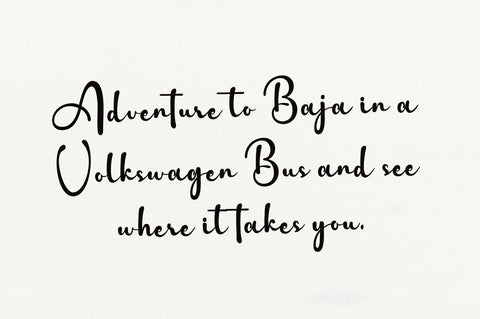 Adventure to Baja in a
Volkswagen Bus and see
where it takes you.